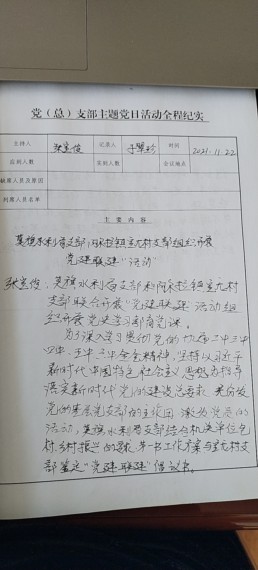 党（总）支部主题党日活动全程纪实
主持人 张宝俊 记录人 于翠珍 时间 2021.11.22
应到人数 实到人数 会议地点
缺席人员及原因
列席人员名单
主要内容
莫旗水利局支部、阿尔拉镇宜尤村支部组织开展
党建联建“活动”
张宝俊：莫旗水利局支部和阿尔拉镇宜尤村
支部联合开展“党建联建”活动组
织开展党史学习教育党课。
为了深入学习贯彻党的十九届二中三中
四中、五中六中全会精神，坚持以习近平
新时代中国特色社会主义思想为指导
落实新时代党的建设总要求 充分发
党的基层党支部的主作用 激为党员的
活动，莫旗水利局支部结合机关单位包
村、乡村振兴的 第一书工作方案与宜尤村支
部签定“党建联建”倡议书。